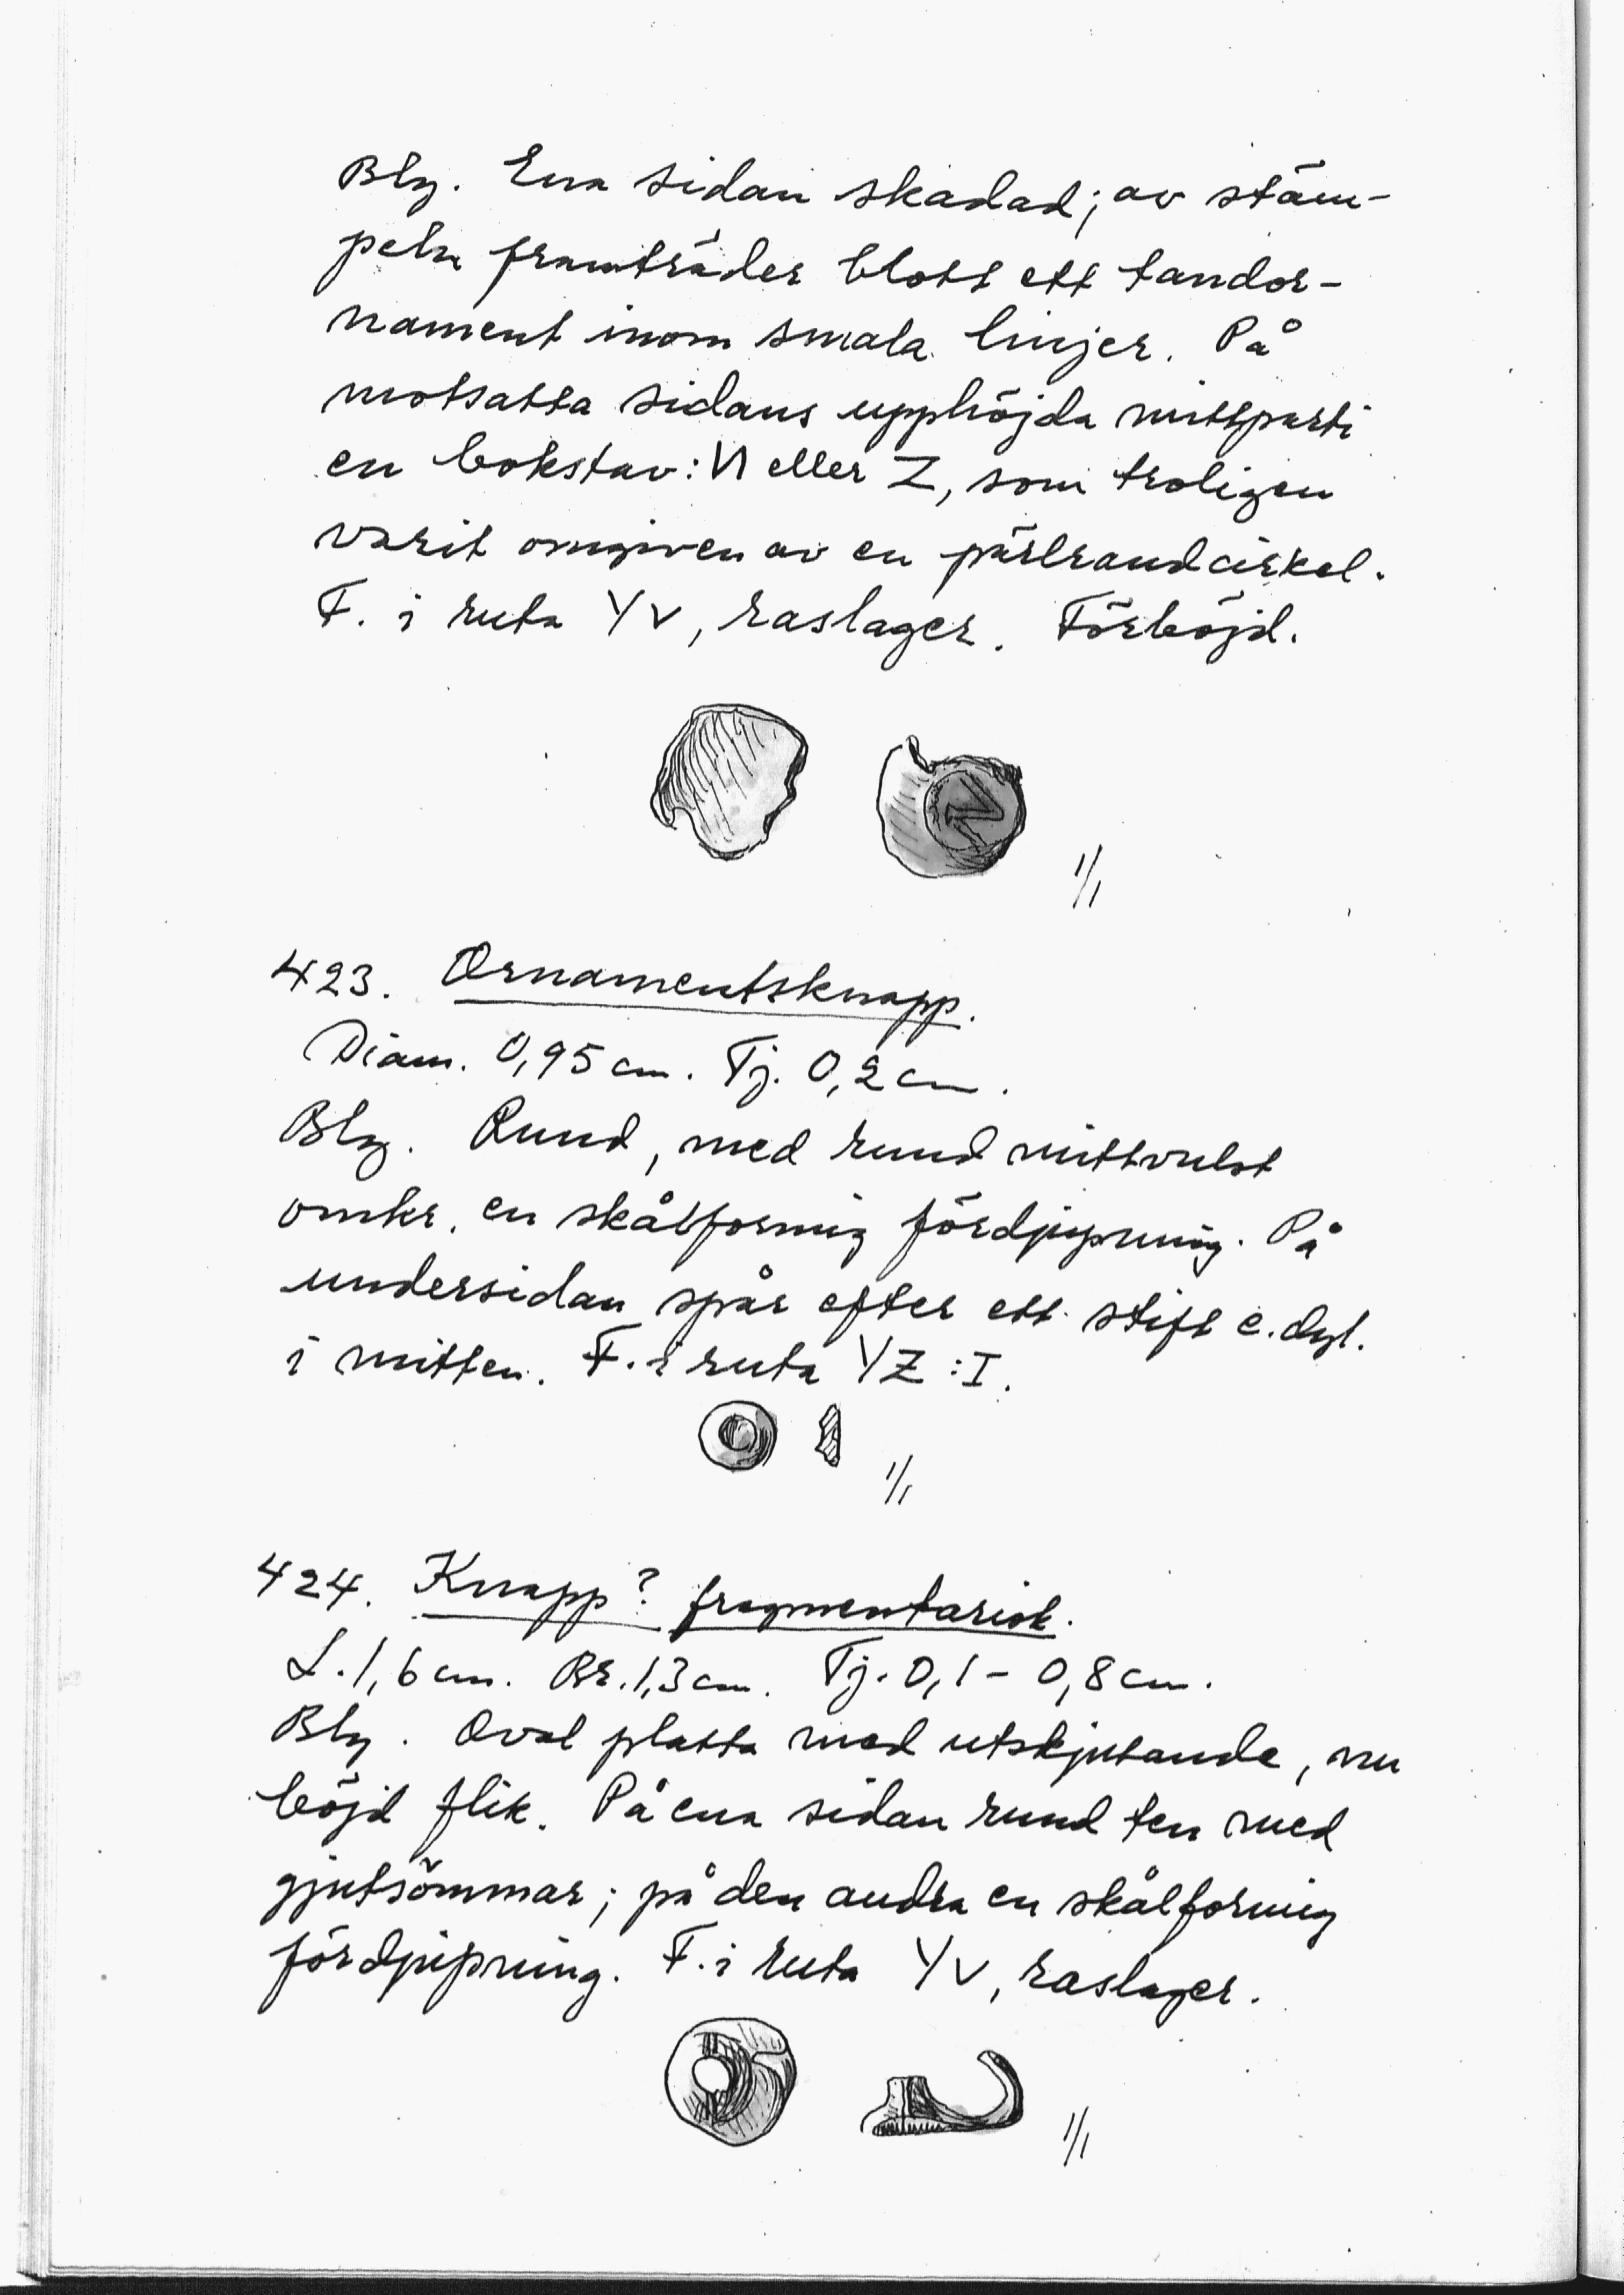 Bly. Ena sidan skadad; av stäm-
peln framträder blott ett tandor-
nament inom smala linjer. På
motsatta sidans upphöjda mittparti
en bokstav: И eller Z, som troligen
varit omgiven av en pärlrandcirkel.
F. i ruta YV, raslager. Förböjd.
1/1
423. Ornamentsknapp.
Diam. 0,95 cm. Tj. 0,2 cm.
Bly. Rund, med rund mittvulst
omkr. en skålformig fördjupning. På
undersidan spår efter ett stift e.dyl.
i mitten. F. i ruta YZ:I.
1/1
424. Knapp? fragmentarisk.
L. 1,6 cm. Br. 1,3 cm. Tj. 0,1 - 0,8 cm.
Bly. Oval platta med utskjutande, nu
böjd flik. På ena sidan rund ten med
gjutsömmar; på den andra en skålformig
fördjupning. F. i ruta YV, raslager.
1/1